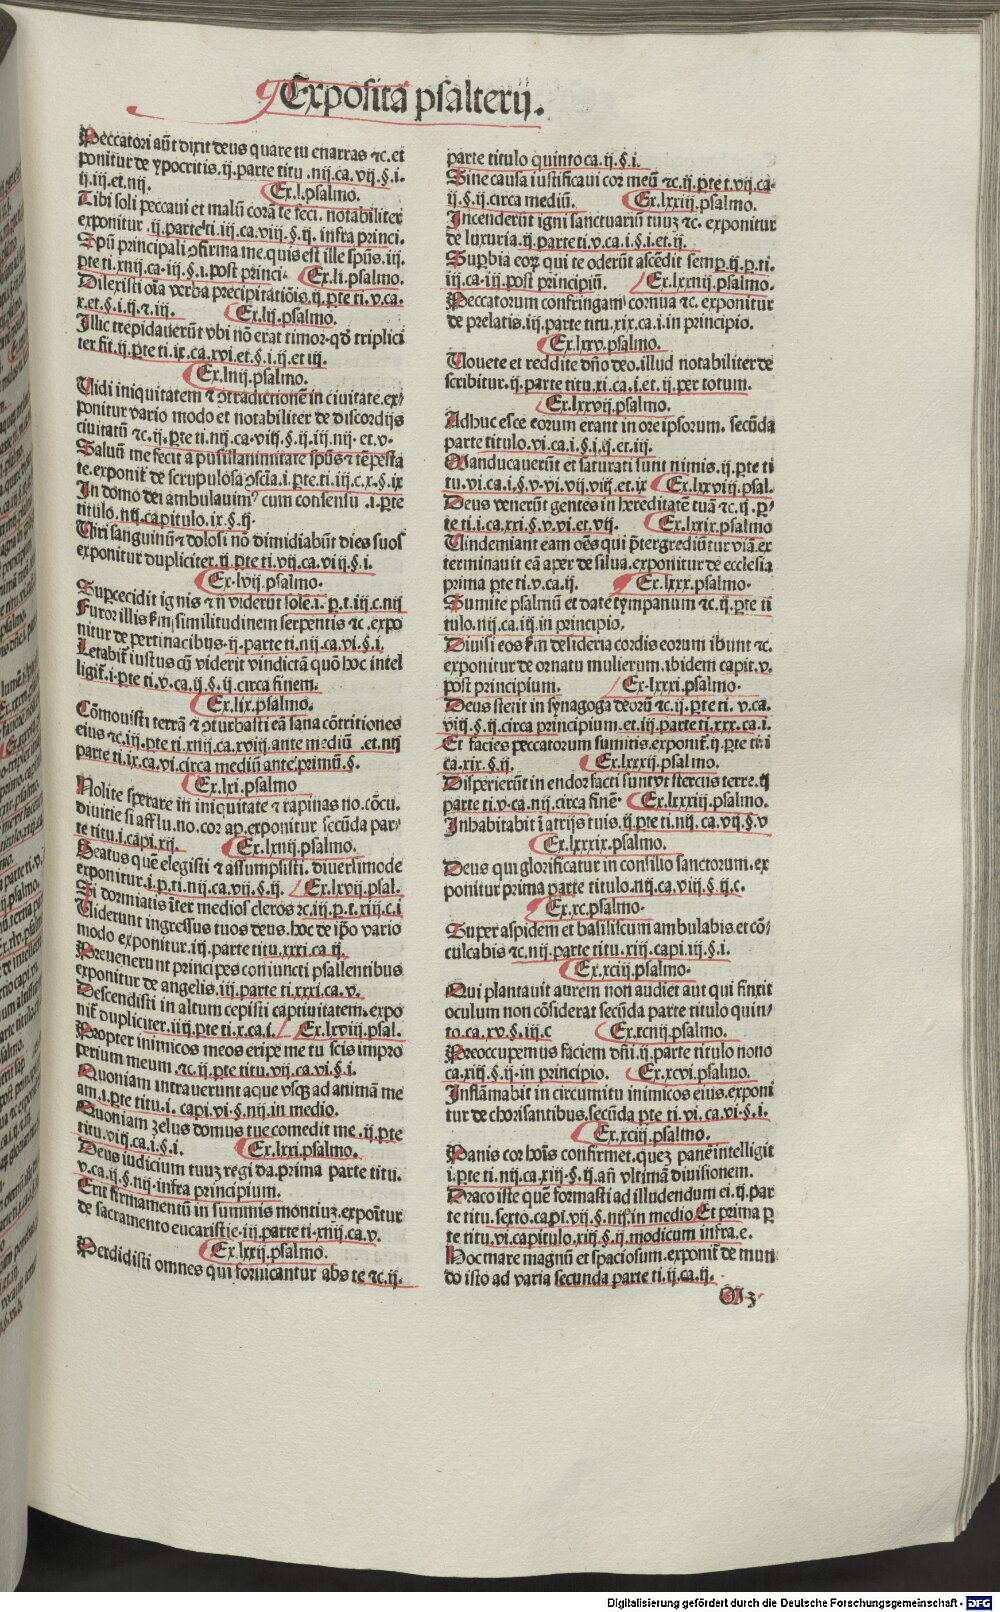 Exposita psalterij.
Peccatori aūt dixit deus quare tu enarras ⁊c. et
ponitur de ypocritis .ij. parte titu .iiij. ca. vij. §. i.
ij. iij. et. iiij.
Ex. l. psalmo.
Tibi soli peccaui et malū corā te feci. notabiliter
exponitur .ij. parte ti. iij. ca. viij. §. ij. infra princi.
Spū principali ↄfirma me. quis est ille spūs. iij.
pte ti. xiiij. ca. iij. §. i. post princi. Ex. li. psalmo.
Dilexisti oīa verba precipitatiōis. ij. pte ti. v. ca.
x. et. §. i. ij. ⁊. iij. Ex. lij. psalmo.
Illic trepidauerūt vbi nō erat timor. qd̄ triplici
ter fit. ij. pte ti. ix. ca. xvi. et. §. i. ij. et iij.
Ex. liiij. psalmo.
Vidi iniquitatem ⁊ ↄtradictionē in ciuitate. ex⸗
ponitur vario modo et notabiliter de discordijs
ciuitatū ⁊c. ij. pte ti. iiij. ca. viij. §. ij. iij. iiij. et. v.
Saluū me fecit a pusillanimitate spūs ⁊ tēpesta
te. exponit̄ de scrupulosa ↄscīa. i. pte. ti. iij. c. x. §. ix
In domo dei ambulauimꝰ cum consensu .i. pte
titulo. iiij. capitulo. ix. §. ij.
Viri sanguinū ⁊ dolosi nō dimidiabūt dies suos
exponitur dupliciter. ij. pte ti. vij. ca. viij. §. i.
Ex. lvij. psalmo.
Supcecidit ignis ⁊ n̄ viderūt solē. i. p. t. iij. c. iiij
Furor illis s̄m similitudinem serpentis ⁊c. expo
nitur de pertinacibus. ij. parte ti. iiij. ca. vi. §. i.
Letabit̄ iustus cū viderit vindictā quō hoc intel
ligit̄. i. pte ti. v. ca. ij. §. ij. circa finem.
Ex. lix. psalmo.
Cōmouisti terrā ⁊ ↄturbasti eā sana cōtritiones
eius ⁊c. iij. pte ti. xiiij. ca. xviij. ante mediū .et. iiij
parte ti. ix. ca. vi. circa mediū ante primū. §.
Ex. lxi. psalmo
Nolite sperare in iniquitate ⁊ rapinas no. cōcu.
diuitie si afflu. no. cor ap. exponitur secūda par⸗
te titu. i. capi. xij. Ex. lxiiij. psalmo.
Beatus quē elegisti ⁊ assumpsisti. diuersimode
exponitur. i. p. ti. iiij. ca. vij. §. ij. Ex. lxvij. psal.
Si dormiatis īter medios cleros ⁊c. iij. p. t. xiij. c. i
Viderunt ingressus tuos deus. hoc de ip̄o vario
modo exponitur. iij. parte titu. xxxi. ca. ij.
Preuenerunt principes coniuncti psallentibus
exponitur de angelis. iij. parte ti. xxxi. ca. v.
Descendisti in altum cepisti captiuitatem. expo
nit̄ dupliciter. iiij. pte ti. x. ca. i. Ex. lxviij. psal.
Propter inimicos meos eripe me tu scis impro
perium meum. ⁊c. ij. pte titu. vij. ca. vi. §. i.
Quoniam intrauerunt aque vsqꝫ ad animā me
am. i. pte titu. i. capi. vi. §. iiij. in medio.
Quoniam zelus domus tue comedit me .ij. pte
titu. viij. ca. i. §. i. Ex. lxxi. psalmo.
Deus iudicium tuuꝫ regi da. prima parte titu.
v. ca. ij. §. iiij. infra principium.
Erit firmamentū in summis montiuꝫ. expoītur
de sacramento eucaristie. iij. parte ti. xiiij. ca. v.
Ex. lxxij. psalmo.
Perdidisti omnes qui fornicantur abs te ⁊c. ij.
parte titulo quinto ca. ij. §. i.
Sine causa iustificaui cor meū ⁊c. ij. pte t. vij. ca⸗
ij. §. ij. circa mediū. Ex. lxxiij. psalmo.
Incenderūt igni sanctuariū tuuꝫ ⁊c. exponitur
de luxuria. ij. parte ti. v. ca. i. §. i. et. ij.
Supbia eoꝝ qui te oderūt ascēdit semp. ij. p. ti.
iij. ca. iij. post principiū. Ex. lxxiiij. psalmo.
Peccatorum confringam cornua ⁊c. exponitur
de prelatis. iij. parte titu. xix. ca. i. in principio.
Ex. lxxv. psalmo.
Vouete et reddite dn̄o deo. illud notabiliter de
scribitur. ij. parte titu. xi. ca. i. et. ij. per totum.
Ex. lxxvij. psalmo.
Adhuc esce eorum erant in ore ipsorum. secūda
parte titulo. vi. ca. i. §. i. ij. et. iij.
Manducauerūt et saturati sunt nimis. ij. pte ti
tu. vi. ca. i. §. v. vi. vij. viij. et. ix Ex. lxxviij. psal.
Deus venerūt gentes in hereditatē tuā ⁊c. ij. p⸗
te ti. i. ca. xxi. §. v. vi. et. vij. Ex. lxxix. psalmo
Vindemiant eam oēs qui p̄tergrediūtur viā. ex
terminauit eā aper de silua. exponitur de ecclesia
prima pte ti. v. ca. ij. Ex. lxxx. psalmo.
Sumite psalmū et date tympanum ⁊c. ij. pte ti
tulo. iiij. ca. iij. in principio.
Diuisi eos s̄m desideria cordis eorum ibunt ⁊c.
exponitur de ornatu mulierum. ibidem capit. v.
post principium. Ex. lxxxi. psalmo.
Deus stetit in synagoga deorū ⁊c. ij. pte ti. v. ca.
viij. §. ij. circa principium. et. iij. parte ti. xxx. ca. i.
Et facies peccatorum sumitis. exponit̄. ij. pte ti. i
ca. xix. §. ij. Ex. lxxxij. psalmo.
Disperierūt in endor facti sunt vt stercus terre. ij
parte ti. v. ca. iiij. circa finē. Ex. lxxxiij. psalmo.
Inhabitabit ī atrijs tuis. ij. pte ti. iiij. ca. vij. §. v
Ex. lxxxix. psalmo.
Deus qui glorificatur in consilio sanctorum. ex
ponitur prima parte titulo. iiij. ca. viij. §. ij. c.
Ex. xc. psalmo.
Super aspidem et basiliscum ambulabis et cō⸗
culcabis ⁊c. iiij. parte titu. xiij. capi. iij. §. i.
Ex. xciij. psalmo.
Qui plantauit aurem non audiet aut qui finxit
oculum non cōsiderat secūda parte titulo quin⸗
to. ca. xv. §. iij. c Ex. xciiij. psalmo.
Preoccupemus faciem dn̄i. ij. parte titulo nono
ca. xiij. §. ij. in principio. Ex. xcvi. psalmo.
Inflāmabit in circuitu inimicos eius. exponi
tur de chorisantibus. secūda pte ti. vi. ca. vi. §. i.
Ex. xciij. psalmo.
Panis cor hoīs confirmet. queꝫ panē intelligit
i. pte ti. iiij. ca. xiij. §. ij. añ vltimā diuisionem.
Draco iste quē formasti ad illudendum ei. ij. par
te titu. sexto. capi. vij. §. iiij. in medio Et prima p
te titu. vi. capitulo. xiij. §. ij. modicum infra. e.
Hoc mare magnū et spaciosum. exponit̄ de mun
do isto ad varia secunda parte ti. ij. ca. ij.
M 3
Digitalisierung gefördert durch die Deutsche Forschungsgemeinschaft - DFG